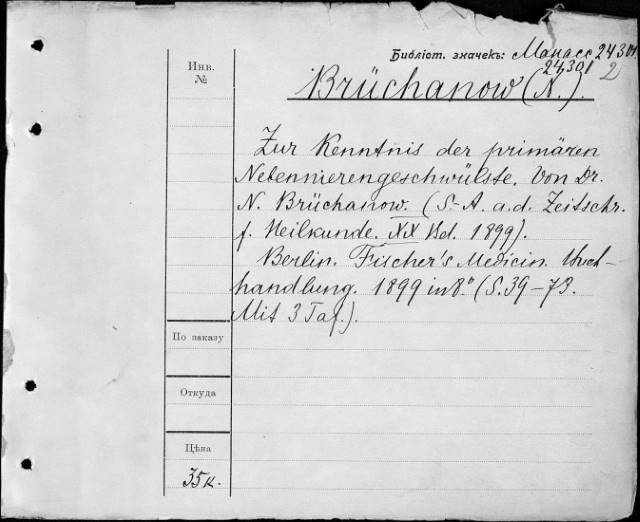 Библіот. значекъ: Манасс 24301
24,301 2
Инв.
№
Brüchanow (N.).
Zur Kenntnis der primären
Nebennierengeschwülste. Von Dr.
N. Brüchanow. (S.-A. a. d. Zeitschr.
f. Heilkunde. XX Bd. 1899).
Berlin. Fischer's Medicin. Buch-
handlung. 1899 in 8.° (S. 39-73.
Mit 3 Taf.).
По заказу
Откуда
Цѣна
35 к.